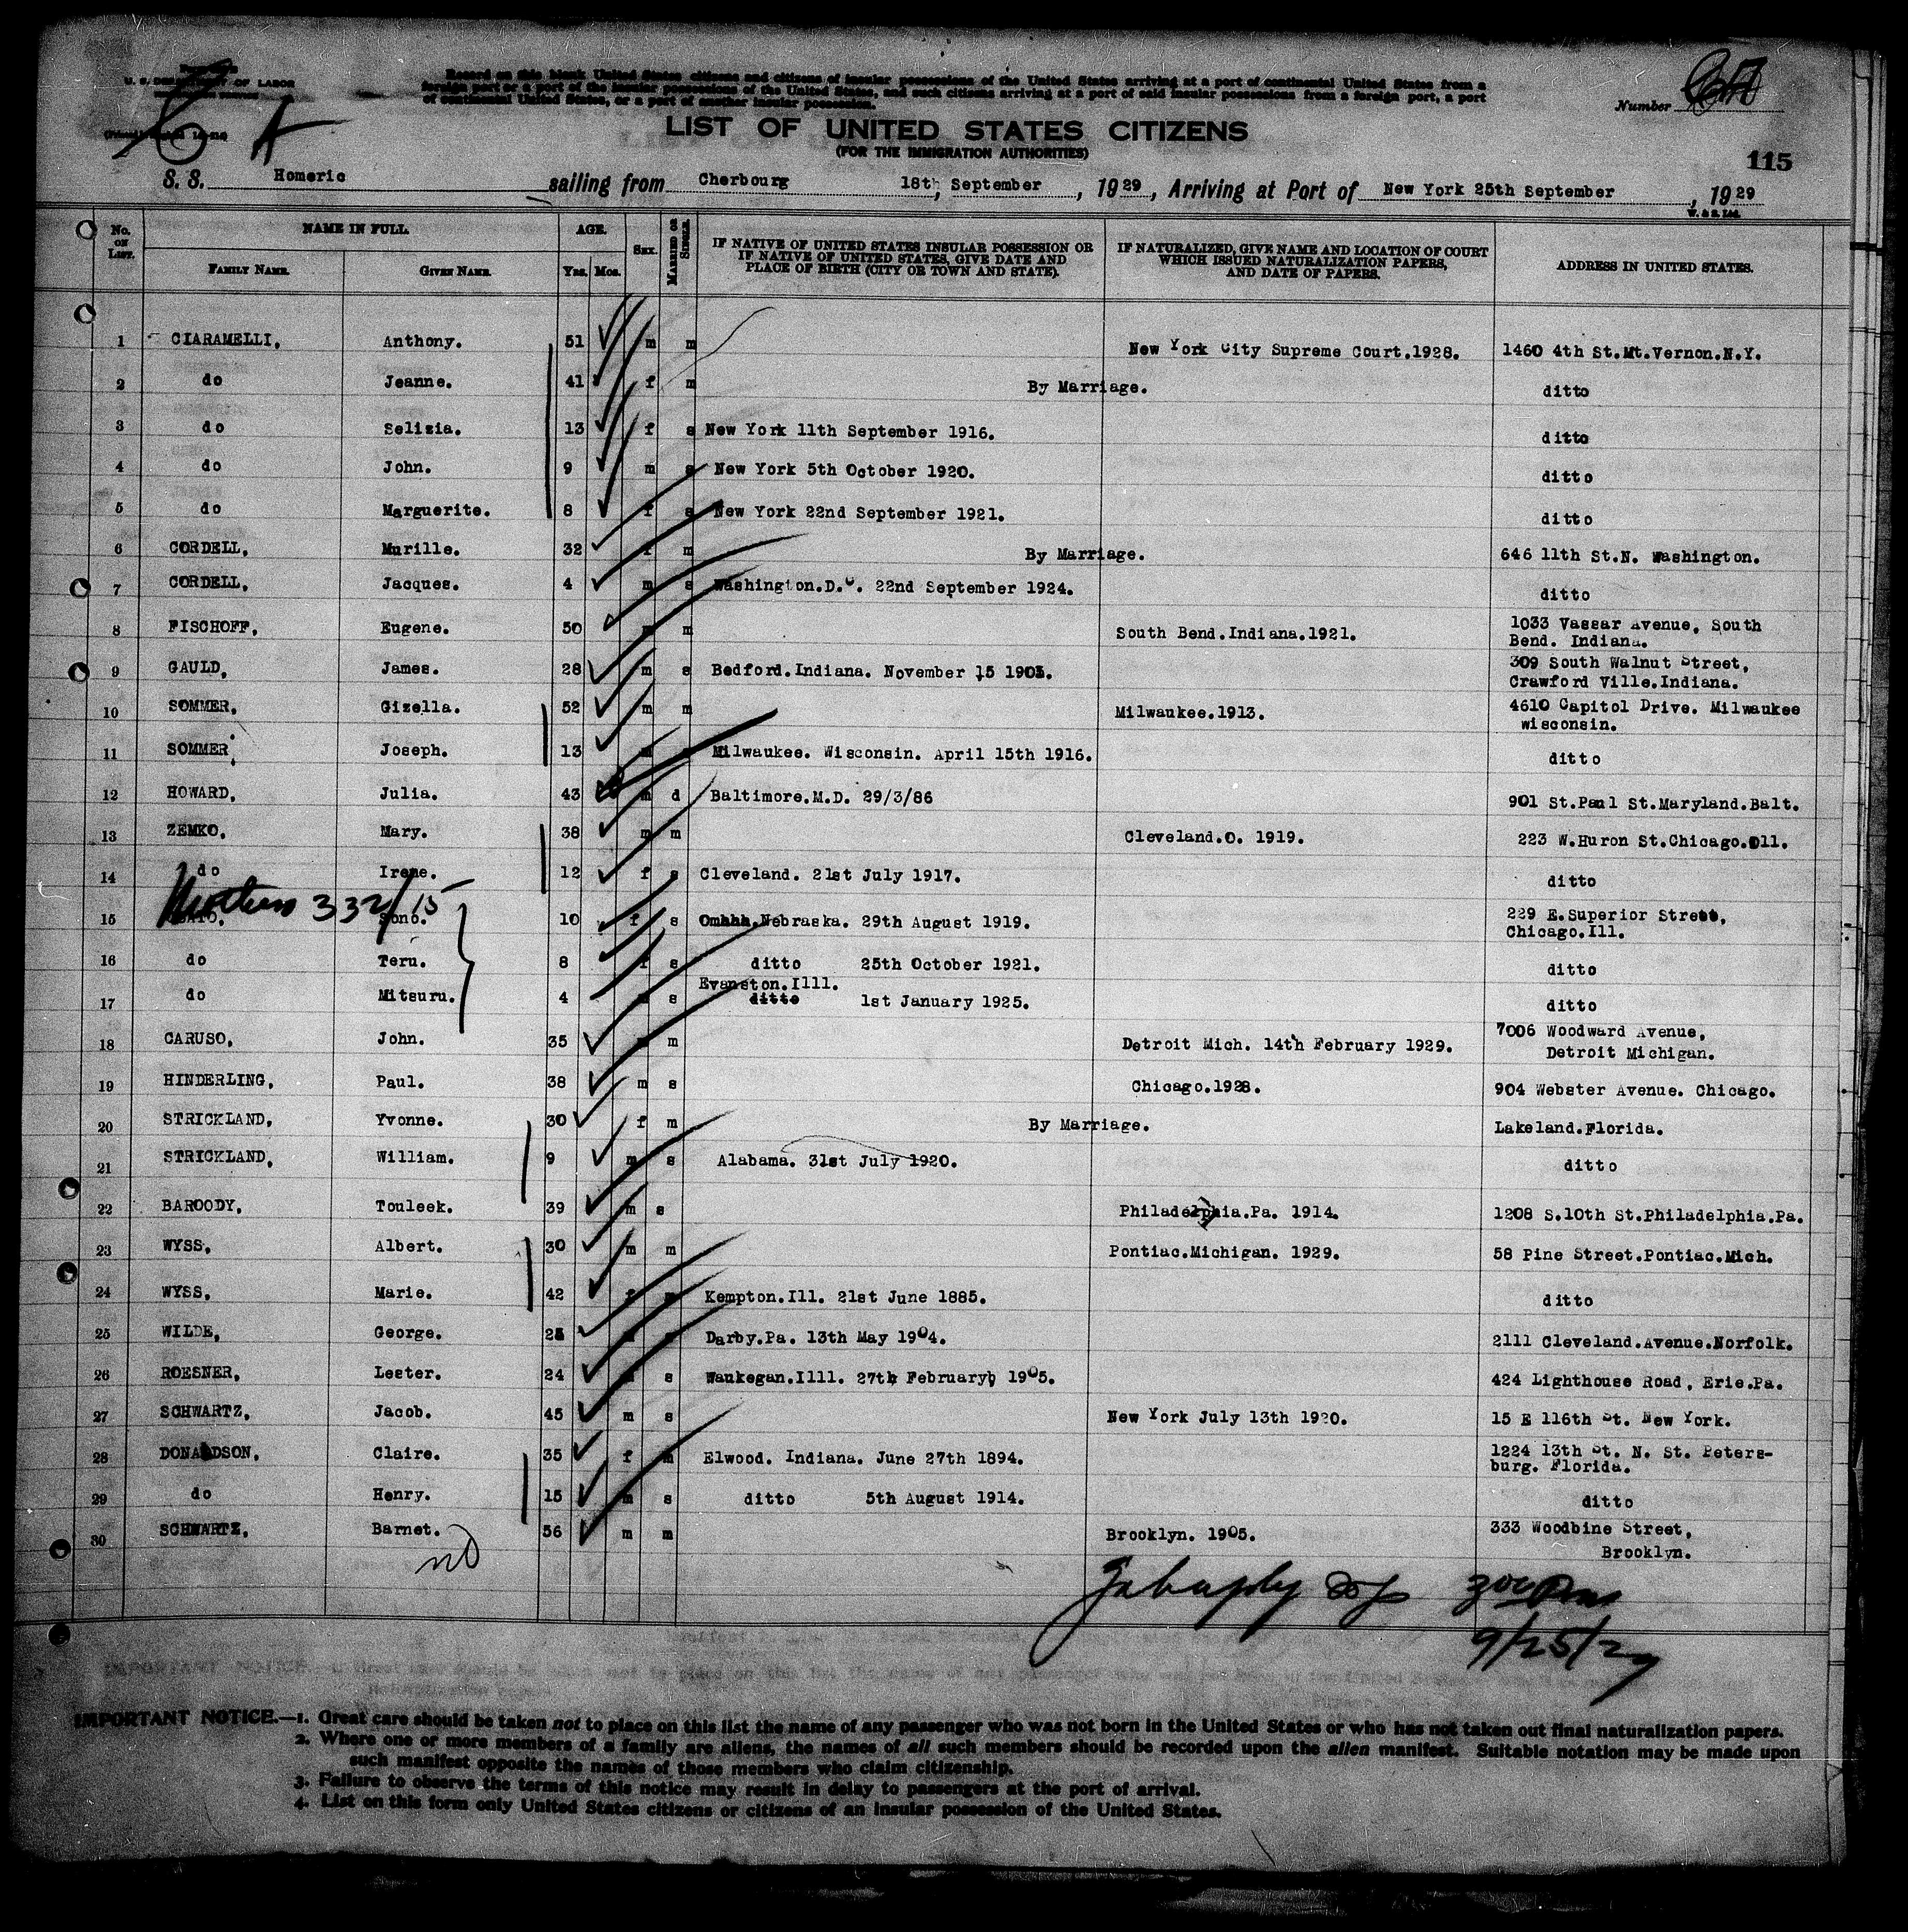 U. S. DEPARTMENT OF LABOR
Number
Record on this blank United States citizens and citizens of insular possessions of the United States arriving at a port of continental United States from a
foreign port or a port of the insular possessions of the United States, and such citizens arriving at a port of said insular possessions from a foreign port, a port
of continental United States, or a port of another insular possession.
LIST OF UNITED STATES CITIZENS
(FOR THE IMMIGRATION AUTHORITIES)
115
S. S. Homeric sailing from Cherbourg 18th, September, 1929, Arriving at Port of New York 25th September, 1929
W. & S. Ltd.
No. ON LIST. NAME IN FULL. AGE. SEX. MARRIED OR SINGLE. IF NATIVE OF UNITED STATES INSULAR POSSESSION OR IF NATIVE OF UNITED STATES, GIVE DATE AND PLACE OF BIRTH (CITY OR TOWN AND STATE). IF NATURALIZED, GIVE NAME AND LOCATION OF COURT WHICH ISSUED NATURALIZATION PAPERS, AND DATE OF PAPERS. ADDRESS IN UNITED STATES.
FAMILY NAME. GIVEN NAME. Yrs. Mos.
1 CIARAMELLI, Anthony. 51 m m New York City Supreme Court.1928. 1460 4th St.Mt.Vernon.N.Y.
2 do Jeanne. 41 f m By Marriage. ditto
3 do Selizia. 13 f s New York 11th September 1916. ditto
4 do John. 9 m s New York 5th October 1920. ditto
5 do Marguerite. 8 f s New York 22nd September 1921. ditto
6 CORDELL, Murille. 32 f m By Marriage. 646 11th St.N. Washington.
7 CORDELL, Jacques. 4 m s Washington.D.C. 22nd September 1924. ditto
8 FISCHOFF, Eugene. 50 m m South Bend.Indiana.1921. 1033 Vassar Avenue, South
Bend. Indiana.
9 GAULD, James. 28 m s Bedford.Indiana. November 15 190. 309 South Walnut Street,
Crawford Ville.Indiana.
10 SOMMER, Gizella. 52 m m Milwaukee.1913. 4610 Capitol Drive. Milwaukee
wisconsin.
11 SOMMER, Joseph. 13 Milwaukee. Wisconsin. April 15th 1916. ditto
12 HOWARD, Julia. 43 m d Baltimore.M.D. 29/3/86 901 St.Paul St.Maryland.Balt.
13 ZEMKO, Mary. 38 m m Cleveland.O. 1919. 223 W.Huron St.Chicago.Oll.
14 do Irene. 12 f s Cleveland. 21st July 1917. ditto
332/15
15 Sono. 10 f s Omahh.Nebraska. 29th August 1919. 229 E.Superior Street,
Chicago.Ill.
16 do Teru. 8 f s ditto 25th October 1921. ditto
Evanston.Illl.
17 do Mitsuru. 4 s ditto 1st January 1925. ditto
18 CARUSO, John. 35 m Detroit Mich. 14th February 1929. 7006 Woodward Avenue,
Detroit Michigan.
19 HINDERLING, Paul. 38 m s Chicago.1928. 904 Webster Avenue. Chicago.
20 STRICKLAND, Yvonne. 30 f m By Marriage. Lakeland.Florida.
21 STRICKLAND, William. 9 m s Alabama. 31st July 1920. ditto
22 BAROODY, Touleek. 39 m s Philadelphia.Pa. 1914. 1208 S.10th St.Philadelphia.Pa.
23 WYSS, Albert. 30 m m Pontiac.Michigan. 1929. 58 Pine Street.Pontiac.Mich.
24 WYSS, Marie. 42 f Kempton.Ill. 21st June 1885. ditto
25 WILDE, George. 25 Darby.Pa. 13th May 1904. 2111 Cleveland.Avenue.Norfolk.
26 ROESNER, Lester. 24 s Waukegan.Illl. 27th February, 1905. 424 Lighthouse Road, Erie.Pa.
27 SCHWARTZ, Jacob. 45 m s New York July 13th 1920. 15 E 116th St. New York.
28 DONALDSON, Claire. 35 f m Elwood. Indiana. June 27th 1894. 1224 13th St. N. St. Peters-
burg. Florida.
29 do Henry. 15 m s ditto 5th August 1914. ditto
30 SCHWARTZ, Barnet. 56 m m Brooklyn. 1905. 333 Woodbine Street,
Brooklyn.
no
9/25/29
IMPORTANT NOTICE.—1. Great care should be taken not to place on this list the name of any passenger who was not born in the United States or who has not taken out final naturalization papers.
2. Where one or more members of a family are aliens, the names of all such members should be recorded upon the alien manifest. Suitable notation may be made upon
such manifest opposite the names of those members who claim citizenship.
3. Failure to observe the terms of this notice may result in delay to passengers at the port of arrival.
4. List on this form only United States citizens or citizens of an insular possession of the United States.